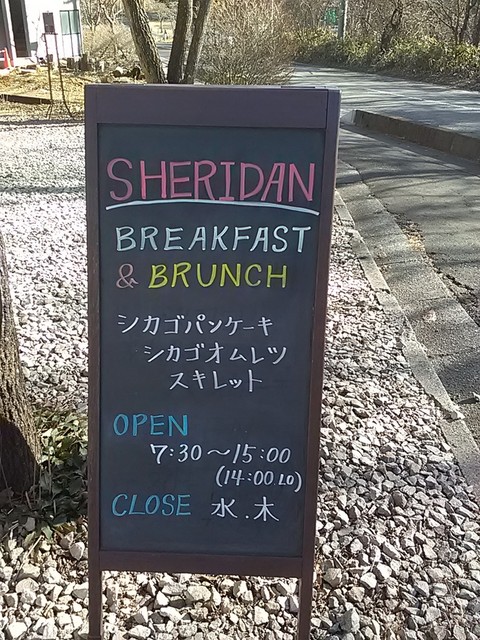 SHERIDAN
BREAKFAST
& BRUNCH
シカゴパンケーキ
シカゴオムレツ
スキレット
OPEN
7:30〜15:00
(14:00 LO)
CLOSE 水.木